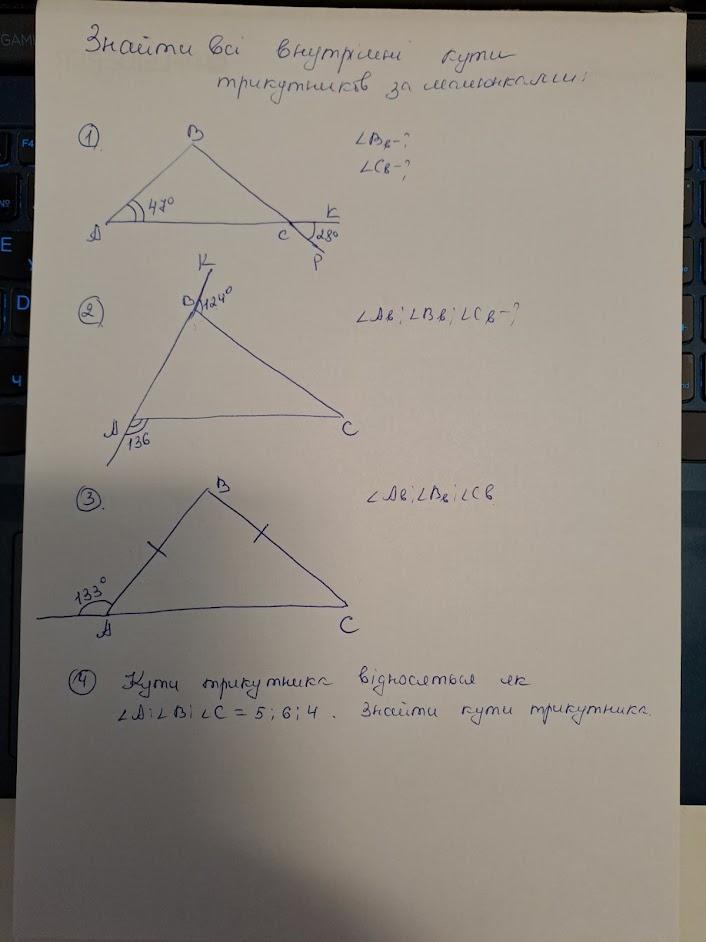 Знайти всі внутрішні кути
трикутників за малюнками:
1
B
∠Bв-?
∠Cв-?
47°
A
C
K
28°
P
K
2
B
124°
∠Aв; ∠Bв; ∠Cв-?
A
136
C
3
B
∠Aв; ∠Bв; ∠Cв
133°
A
C
4 Кути трикутника відносяться як
∠A:∠B:∠C = 5;6;4. Знайти кути трикутника.